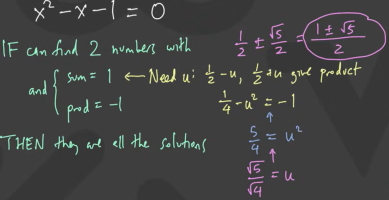 x² - x - 1 = 0
IF can find 2 numbers with
and { sum = 1 ← Need u: 1/2 - u, 1/2 + u give product
prod = -1
THEN they are all the solutions
1/2 ± √5/2 = (1 ± √5)/2
1/4 - u² = -1
↑
5/4 = u²
↑
√5/√4 = u